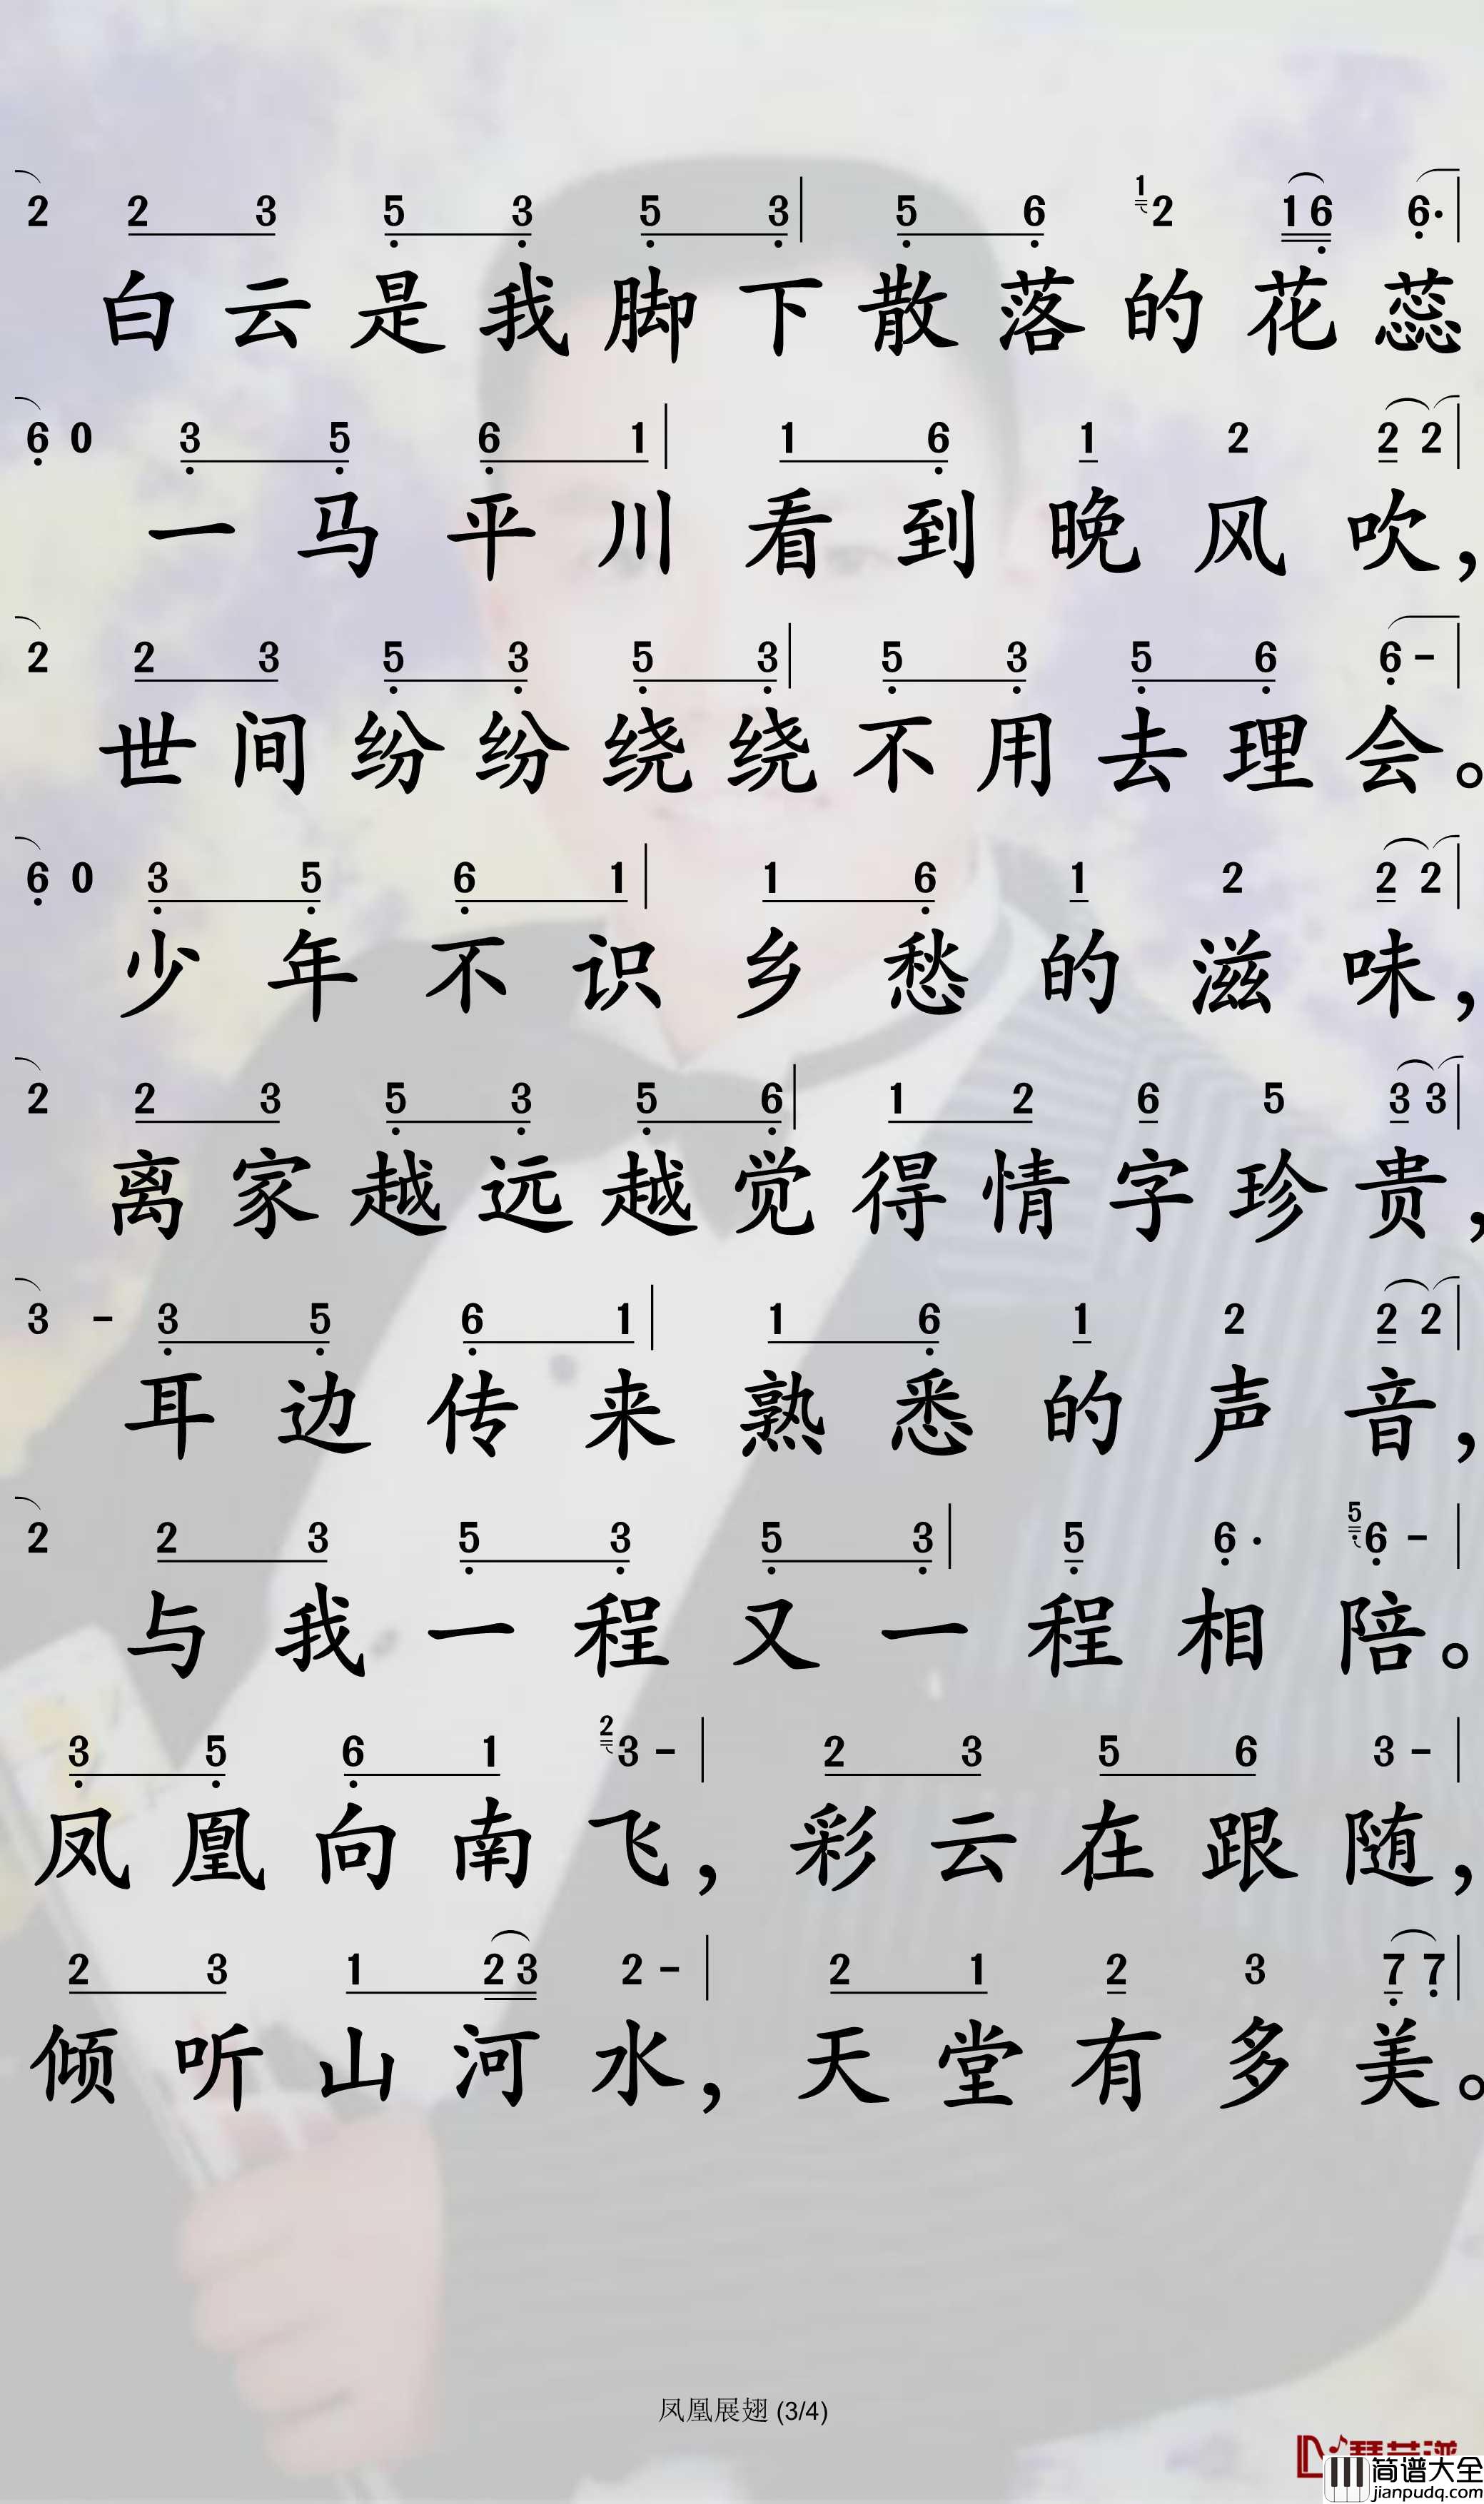 2 2 3 5 3 5 3 5 6 1 2 1 6 6·
白云是我脚下散落的花蕊
6 0 3 5 6 1 1 6 1 2 2 2
一马平川看到晚风吹，
2 2 3 5 3 5 3 5 3 5 6 6 -
世间纷纷绕绕不用去理会。
6 0 3 5 6 1 1 6 1 2 2 2
少年不识乡愁的滋味，
2 2 3 5 3 5 6 1 2 6 5 3 3
离家越远越觉得情字珍贵，
3 - 3 5 6 1 1 6 1 2 2 2
耳边传来熟悉的声音，
2 2 3 5 3 5 3 5 6· 5 6 -
与我一程又一程相陪。
3 5 6 1 2 3 - 2 3 5 6 3 -
凤凰向南飞，彩云在跟随，
2 3 1 2 3 2 - 2 1 2 3 7 7
倾听山河水，天堂有多美。
凤凰展翅 (3/4)
简谱大全
jianpudq.com